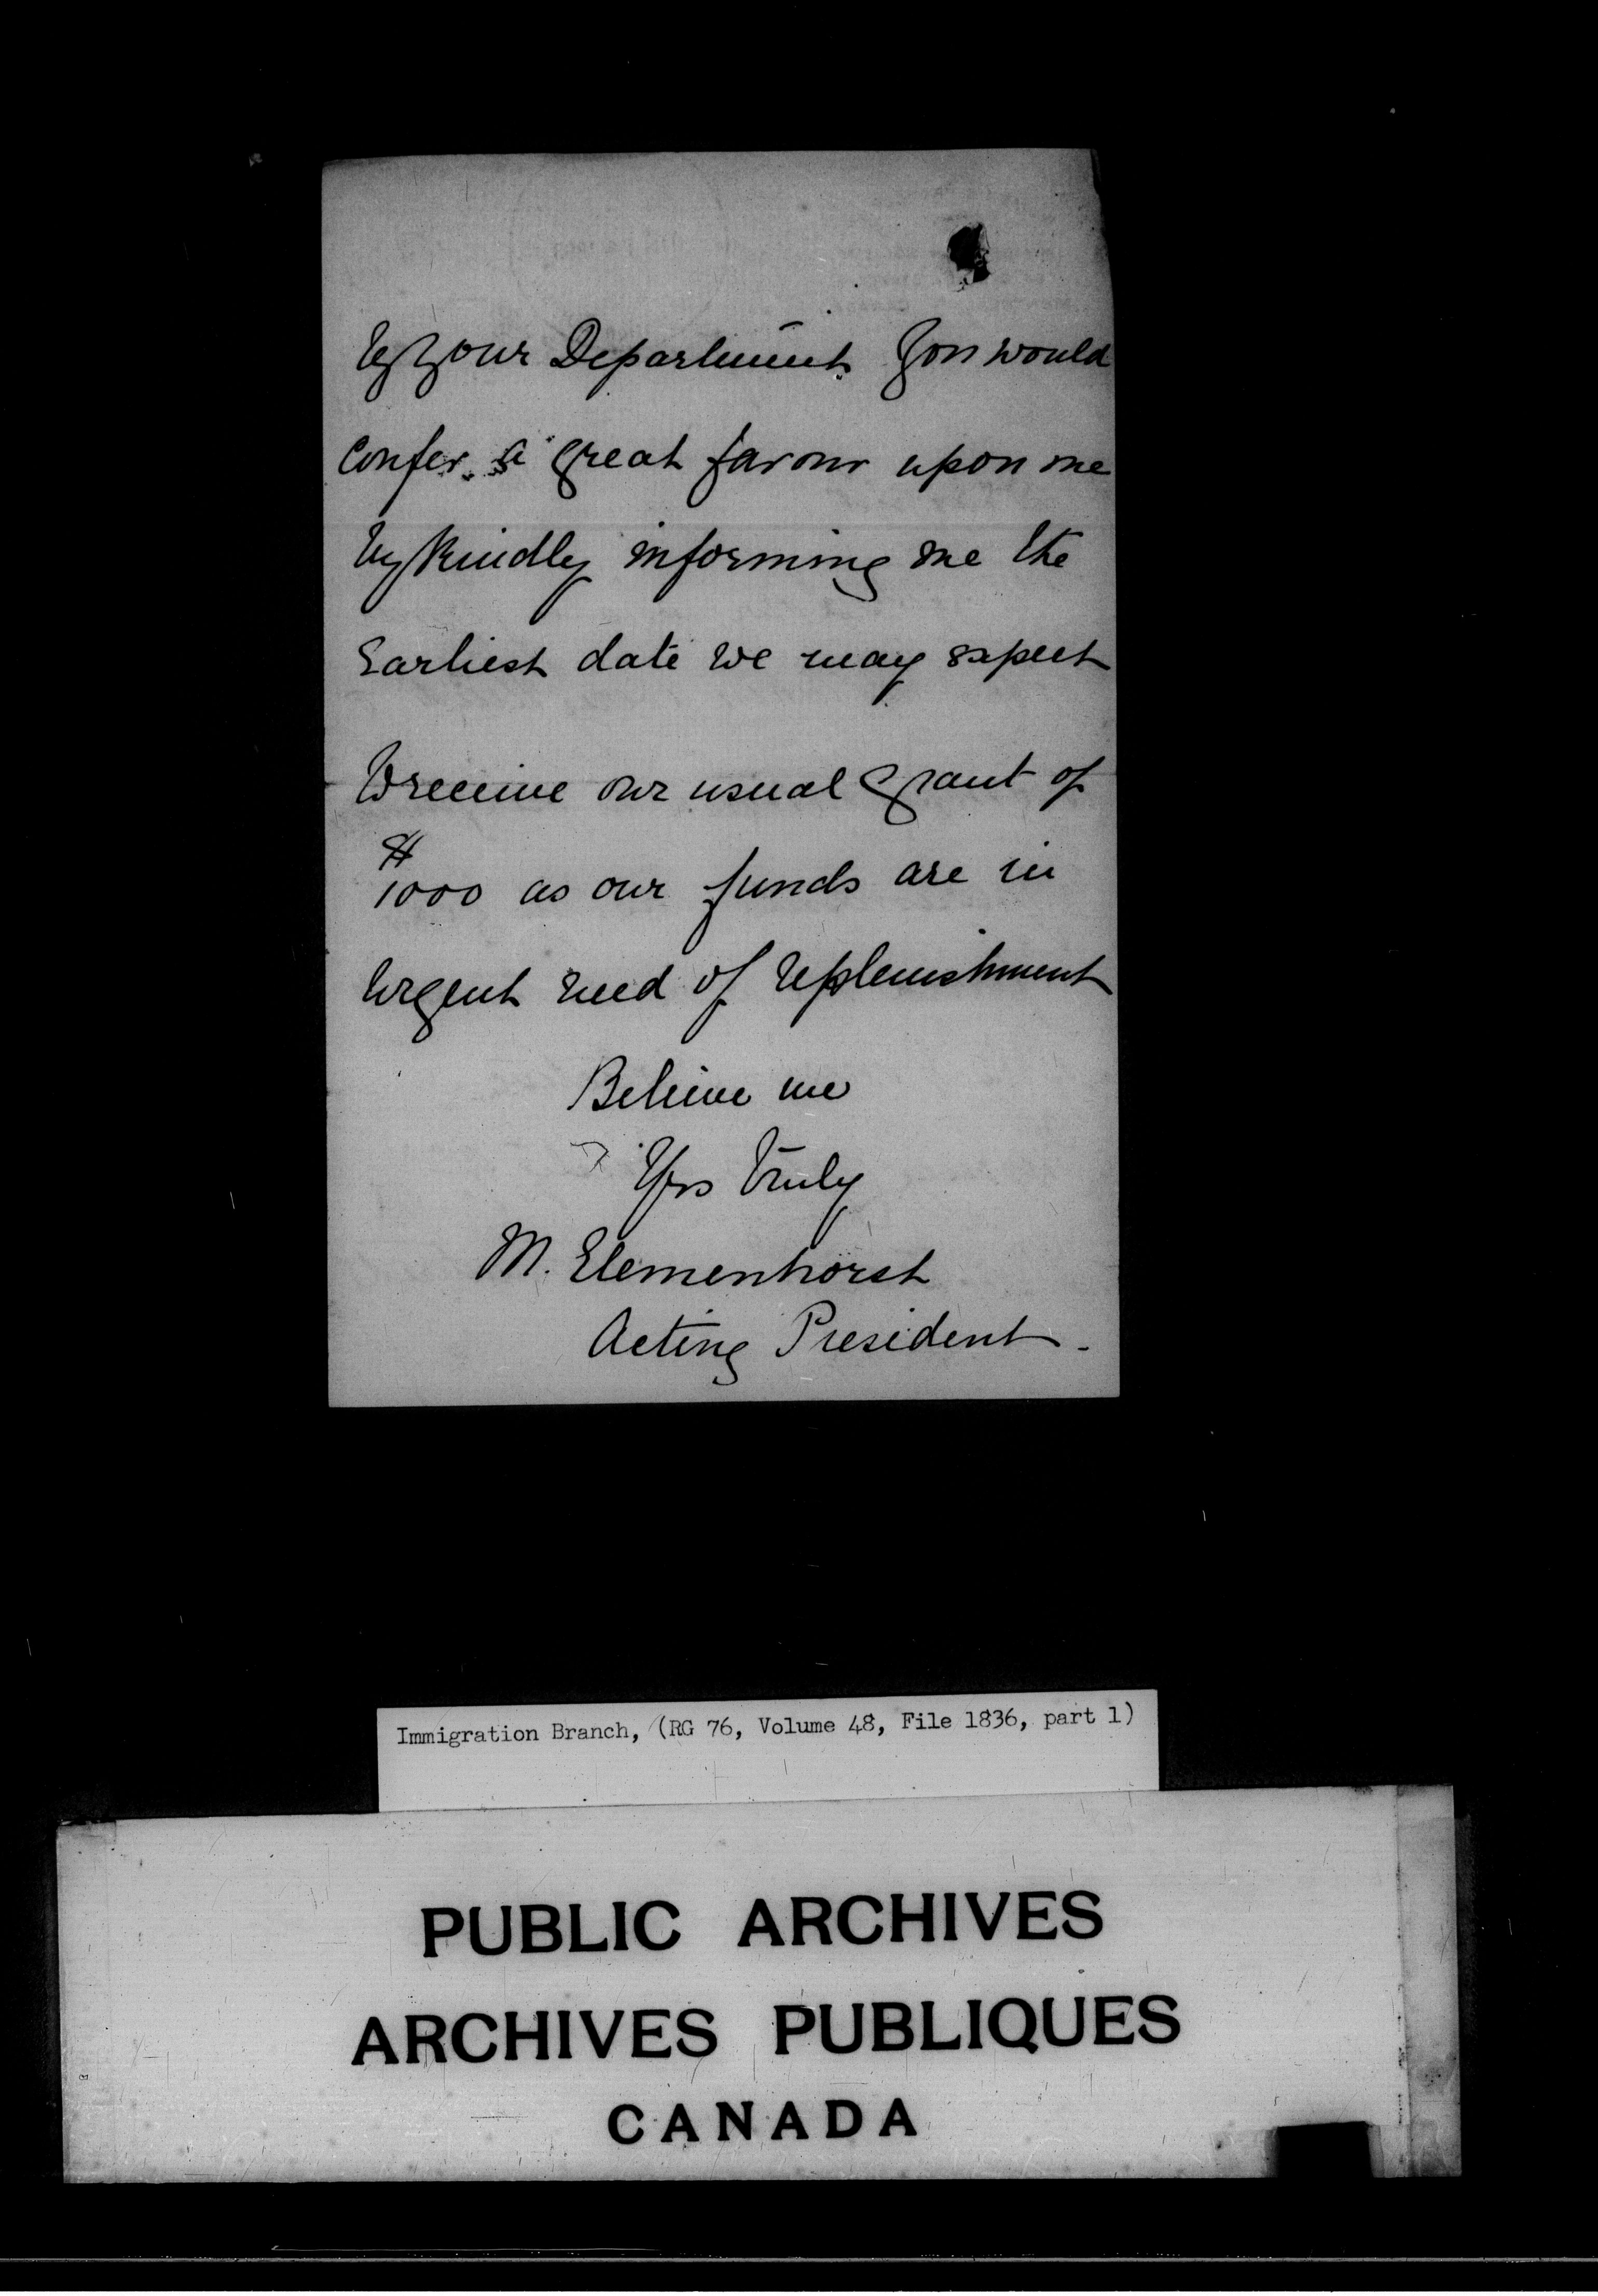 by your Department. You would
confer a great favour upon me
by kindly informing me the
Earliest date we may expect
to receive our usual grant of
$
1000 as our funds are in
urgent need of replenishment
Believe me
Yrs truly
M. Elemenhorst
Acting President.
Immigration Branch, (RG 76, Volume 48, File 1836, part 1)
PUBLIC ARCHIVES
ARCHIVES PUBLIQUES
CANADA